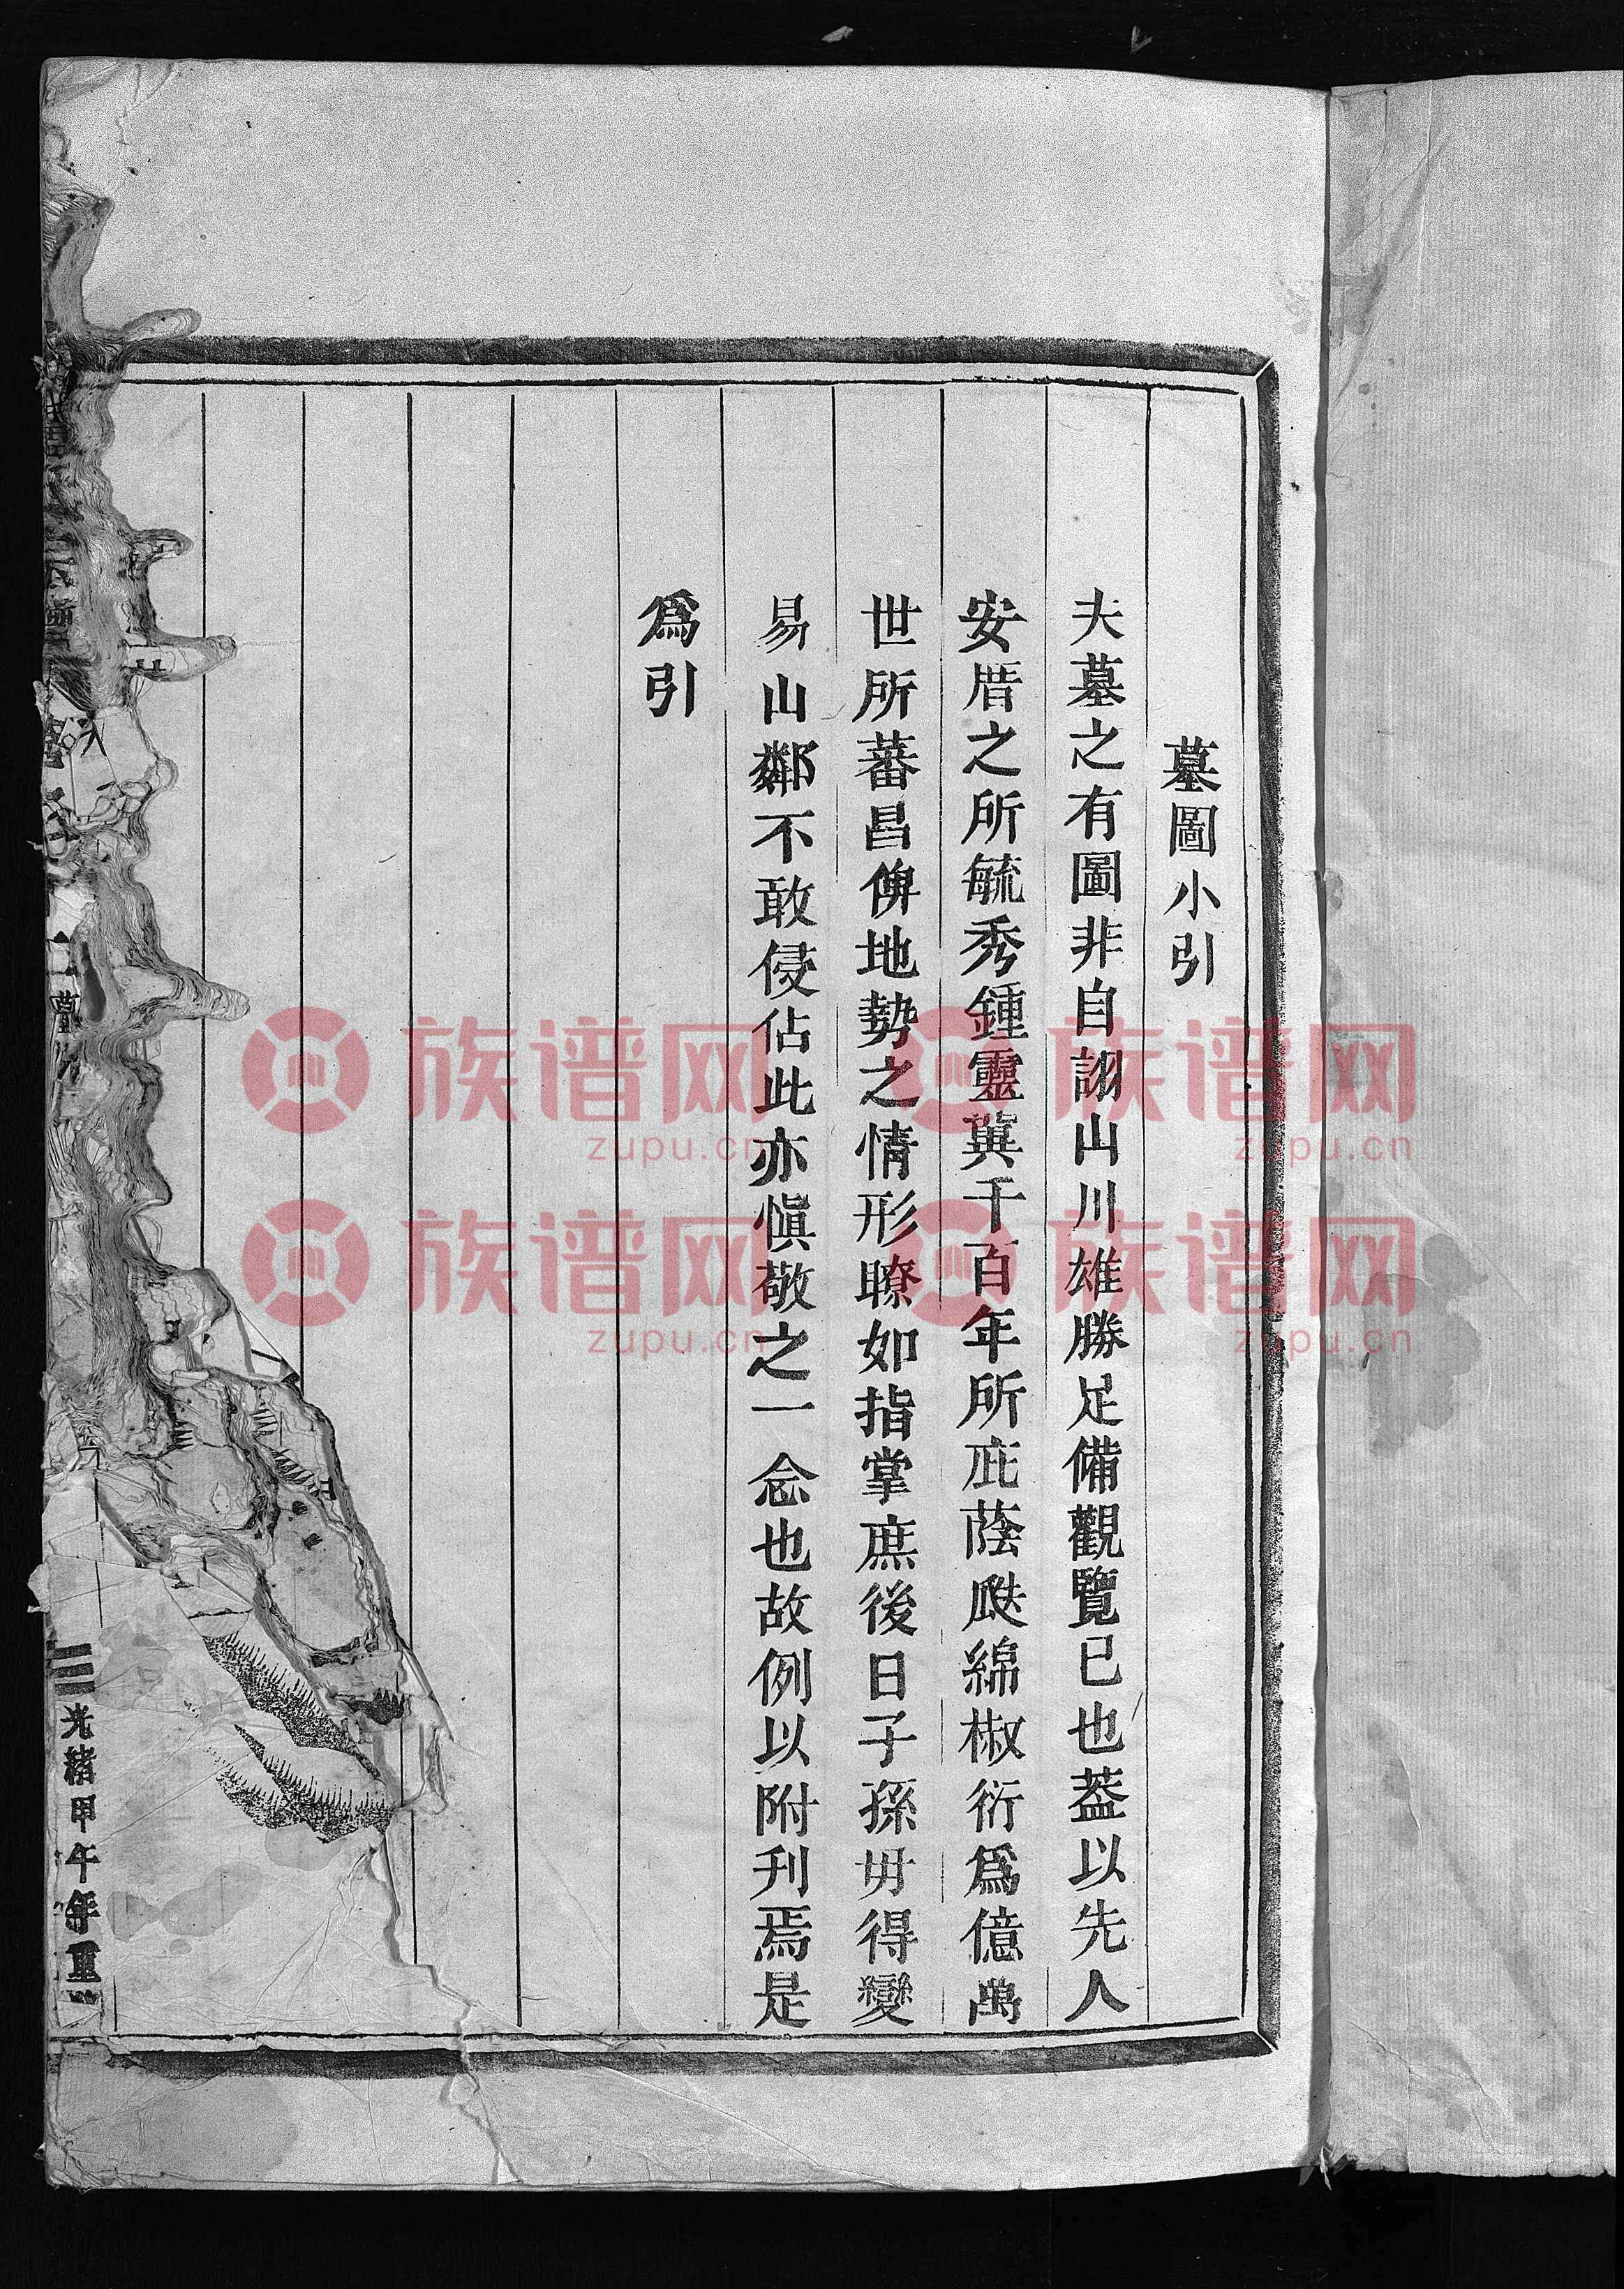 墓圖小引
夫墓之有圖非自詡山川雄勝足備觀覽已也葢以先人
安厝之所毓秀鍾靈冀千百年所庇蔭瓞綿椒衍爲億萬
世所蕃昌俾地勢之情形瞭如指掌庶後日子孫毋得變
易山鄰不敢侵佔此亦愼敬之一念也故例以附刊焉是
爲引
光緒甲午年重
族谱网
zupu.cn
族谱网
zupu.cn
族谱网
zupu.cn
族谱网
zupu.cn